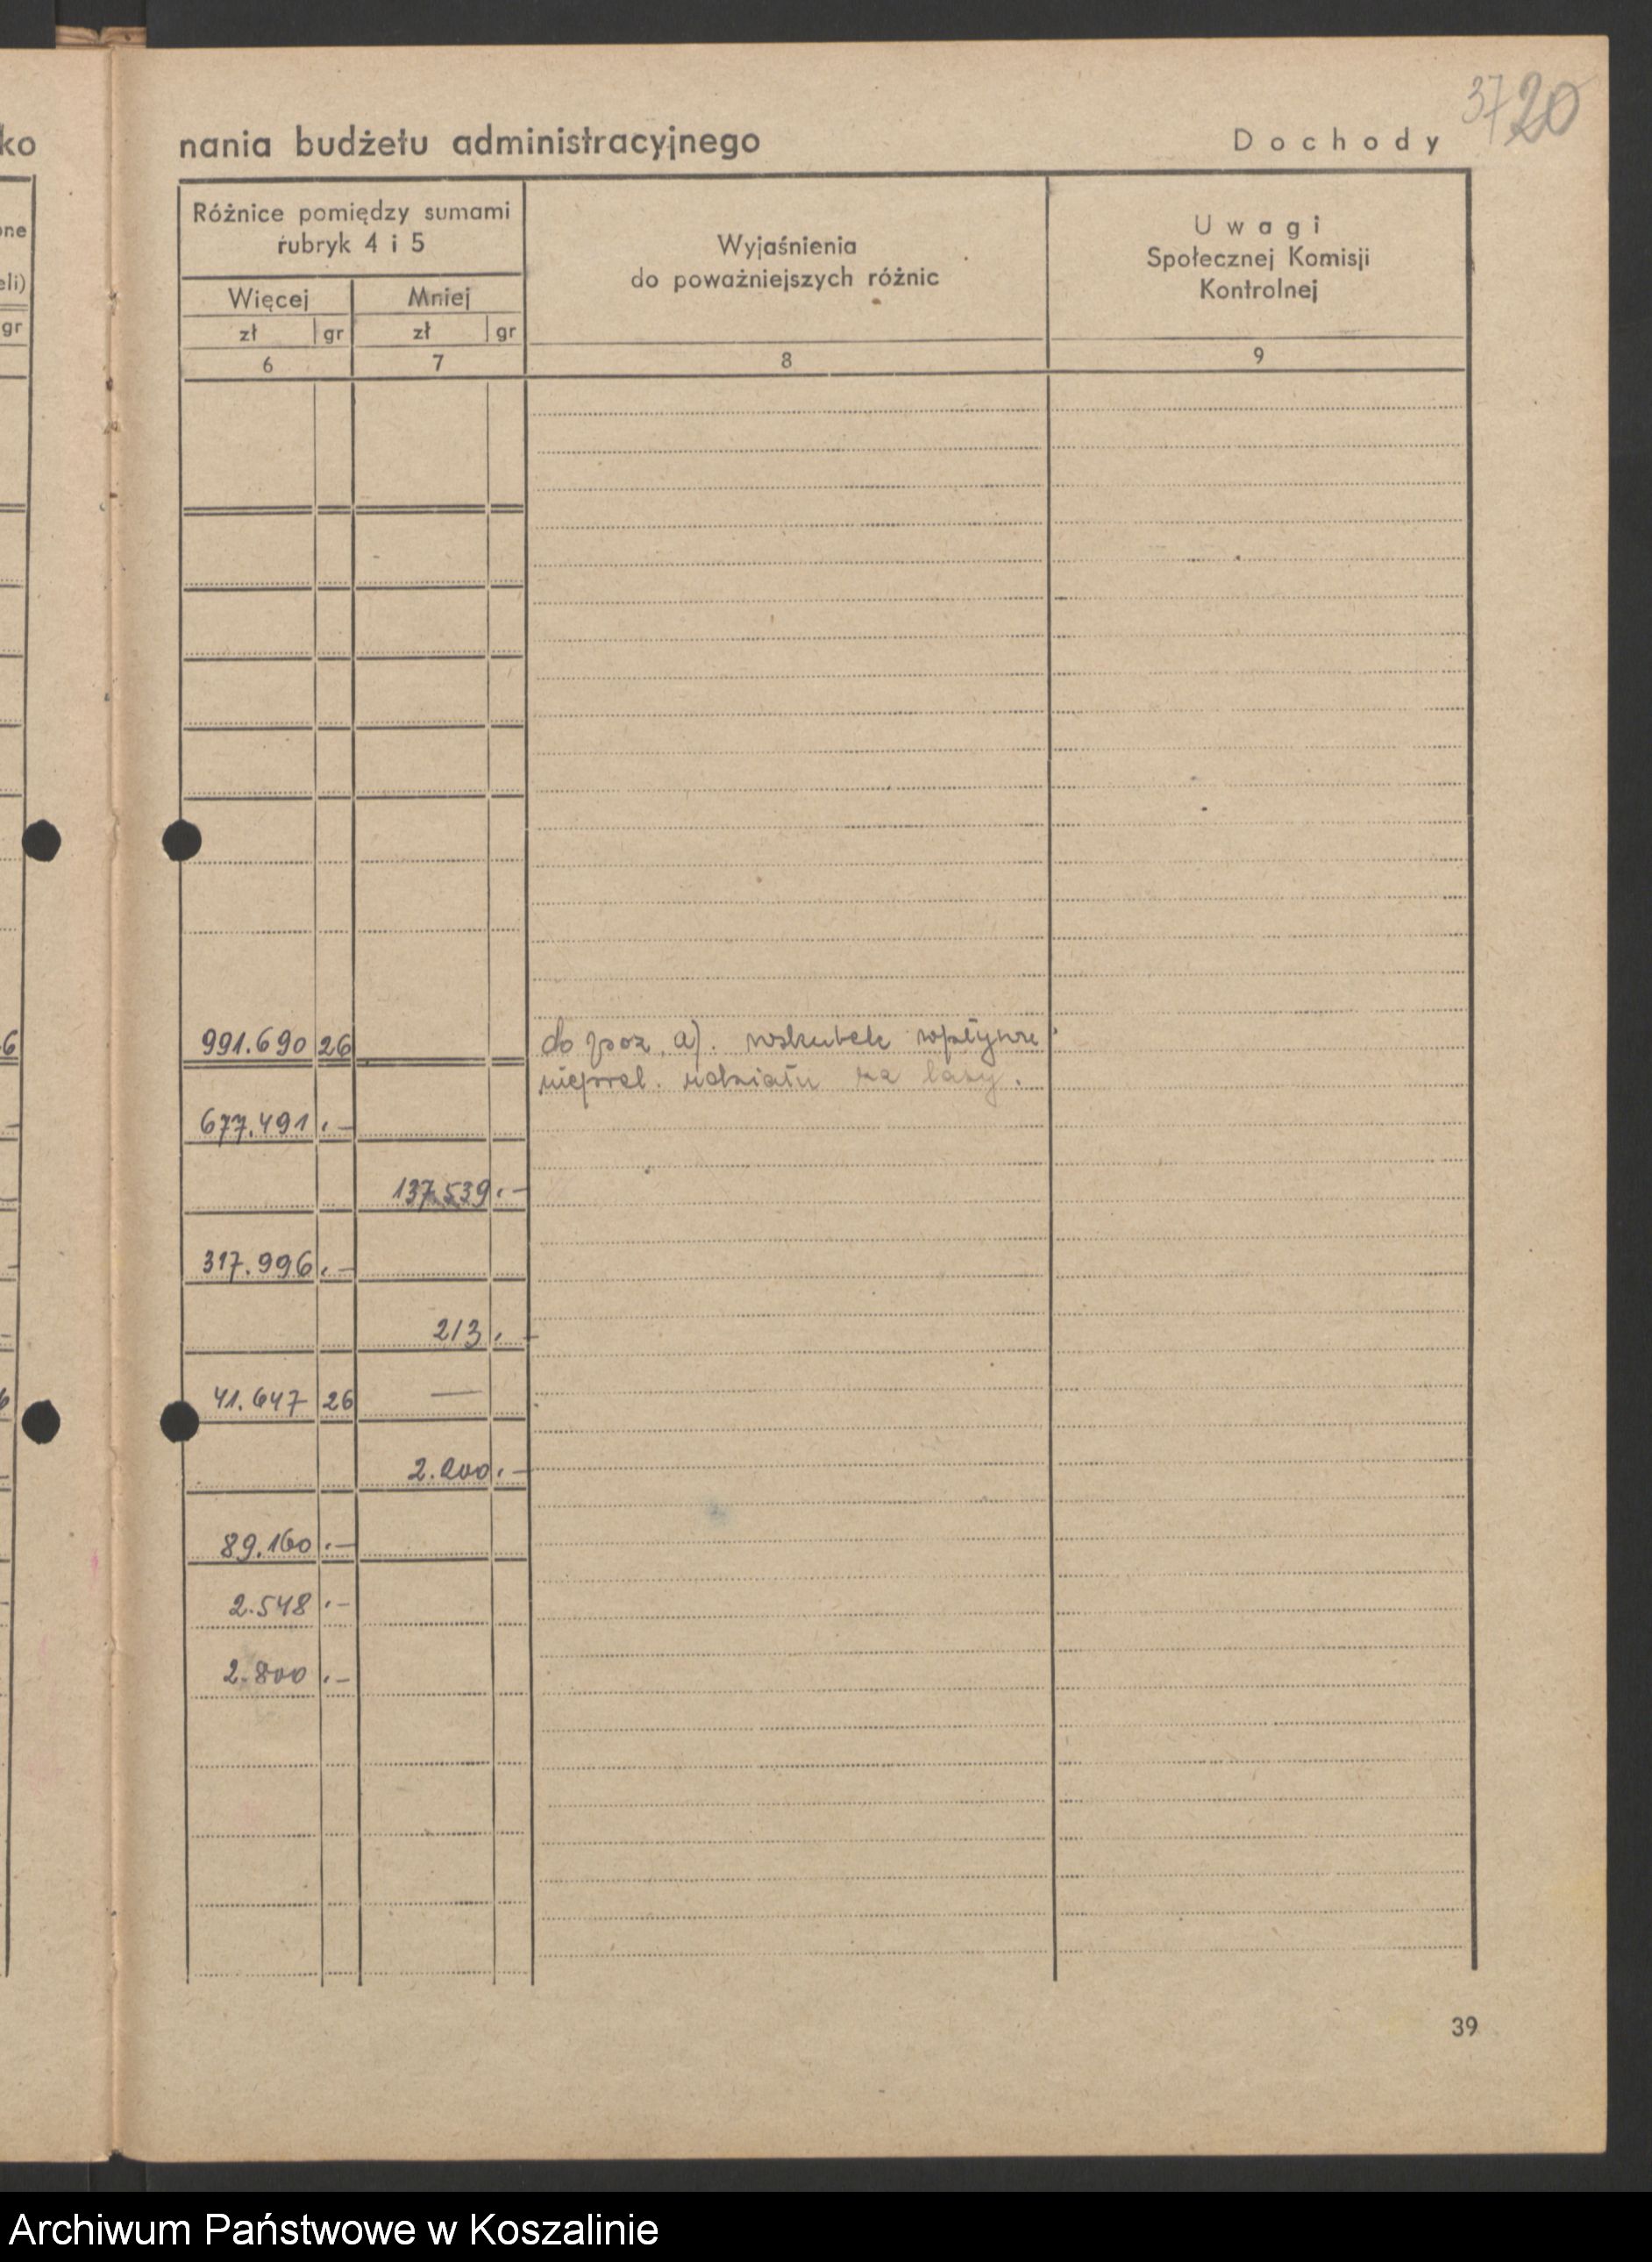 3720
ko
nania budżetu administracyjnego
Dochody
one
eli)
gr
Różnice pomiędzy sumami
rubryk 4 i 5
Więcej
Mniej
zł gr
zł gr
6
7
Wyjaśnienia
do poważniejszych różnic
8
Uwagi
Społecznej Komisji
Kontrolnej
9
6 991.690 26 do poz. a). wskutek wpływu
udziału za lasy.
677.491 . —
137.539 . —
317.996 . —
213 . —
41.647 26 —
2.200 . —
89.160 . —
2.548 . —
2.800 . —
39
Archiwum Państwowe w Koszalinie